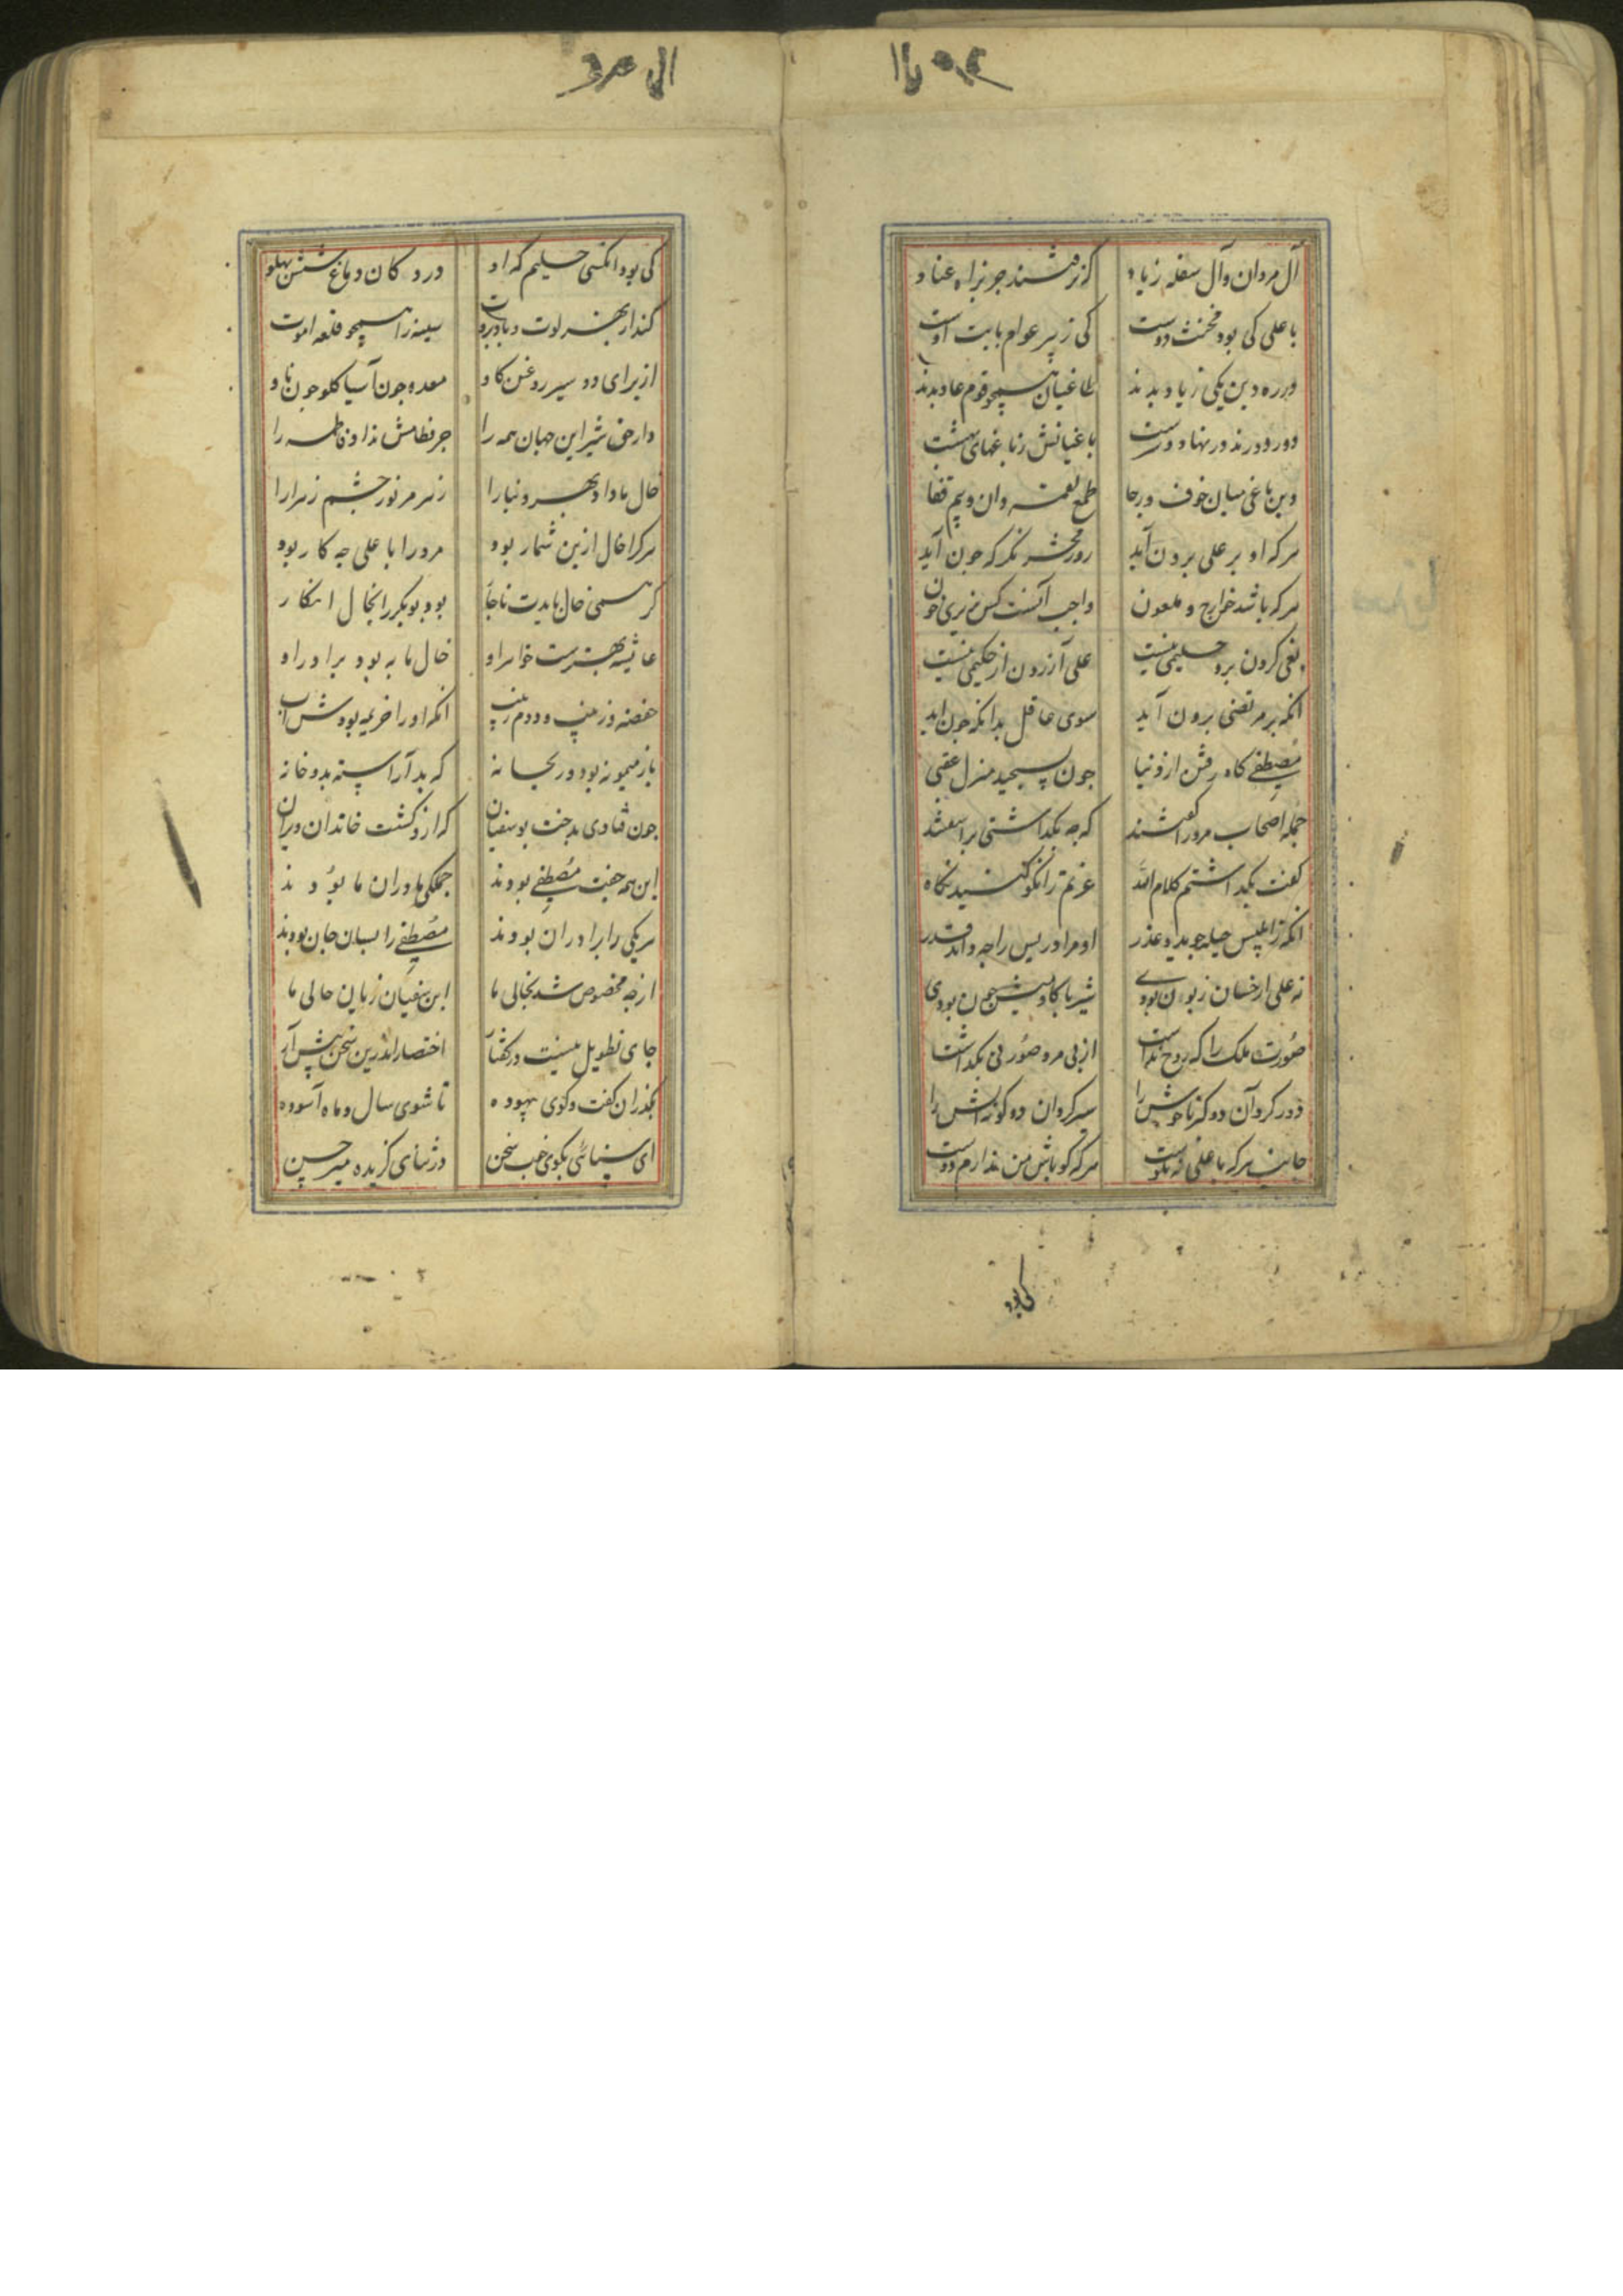 آل مروان وآل سفله زیاد کز نرفتند جز براه عناد
با علی کی بود مخنث دوست کی زبیر عوام بابت اوست
در ره دین یکی زیاد بدند طاغیان همچو قوم عاد بدند
دور دورند در نهاد درست باغیانش ز باغهای بهشت
وین باغی میان خوف ورجا طمع نعمت وان وبیم قفا
هرکه او بر علی برون آید روز محشر نگر که چون آید
هرکه باشد خوارج و ملعون واجب آنست کس بریزی خون
بغی کردن برو حلیمی نیست علی آزردن از حکیمی نیست
انکه بر مرتضی برون آید سوی عاقل بدانکه چون اید
مصطفی گاه رفتن از دنیا چون بسیجید منزل عقبی
جمله اصحاب مرورا گفتند که چه بگذاشتی براشفتند
گفت بگذاشتم کلام الله عترتم را نکو کنید نگاه
انکه ز ابلیس حیله جوید وعذر او مر ادریس را چه داند قدر
نه علی از خسان زبون بودی شیر با گاومیش چون بودی
صورت ملک را که روح نداشت از پی مرد صورتی بگذاشت
دور کرد آن دو گنده ناخوش را سیر کرد ان دو کونه آتش را
جانب هرکه با علی نه نکوست هرکه گو باش من ندارم دوست
کی بود
کی بود انکسی حلیم که او درد کان دماغ شش پهلو
کند از بهر لوت و باد بروت سینه را همچو قلعه الموت
از برای دو سیر روغن گاو معده چون آسیا گلو چون ناو
دارخی شیر این جهان همه را جز نظامش نداد فاطمه را
خال ما داد بهر دنیا را زهر مر نور چشم زهرا را
هرکرا خال ازین شمار بود مرورا با علی چه کار بود
گر همی خال بایدت ناچار بود بوبکر را نخال انکار
عایشه بهترست خواهر او خال ما به بود برادر او
حفصه و زینب ودوم زینب انکه اورا خزیمه بودش اب
باز میمونه بود وریحانه که بد آراسته بدو خانه
چون فتادی بدخت بوسفیان که ازو گشت خاندان ویران
این همه جفت مصطفی بودند جملگی مادران ما بودند
هریکی را برادران بودند مصطفی را بسان جان بودند
از چه مخصوص شد بخالی ما ابن سفیان زیان حالی ما
جای تطویل نیست در گفتار اختصار اندرین سخن پیش آر
بگذر ان گفت وگوی بیهوده تا شوی سال وماه آسوده
ای سنائی بگوی خوب سخن در ثنای گزیده میر حسن